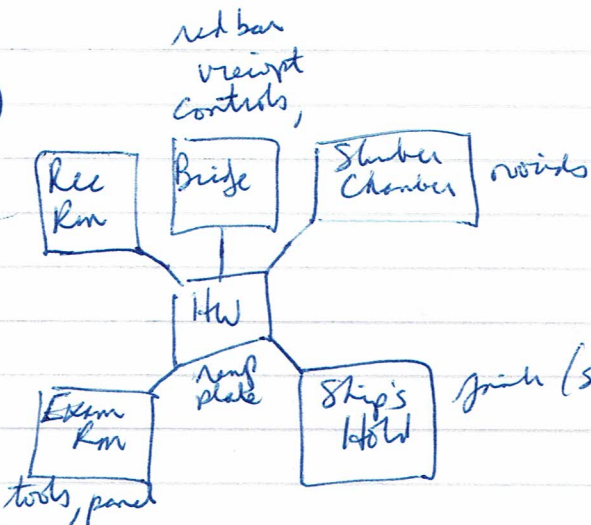 red bar
viewpt
controls,
Rec
Rm
Bridge
Slumber
Chamber
ovoids
HW
ramp
plate
Exam
Rm
Ship's
Hold
(s
tools, panel